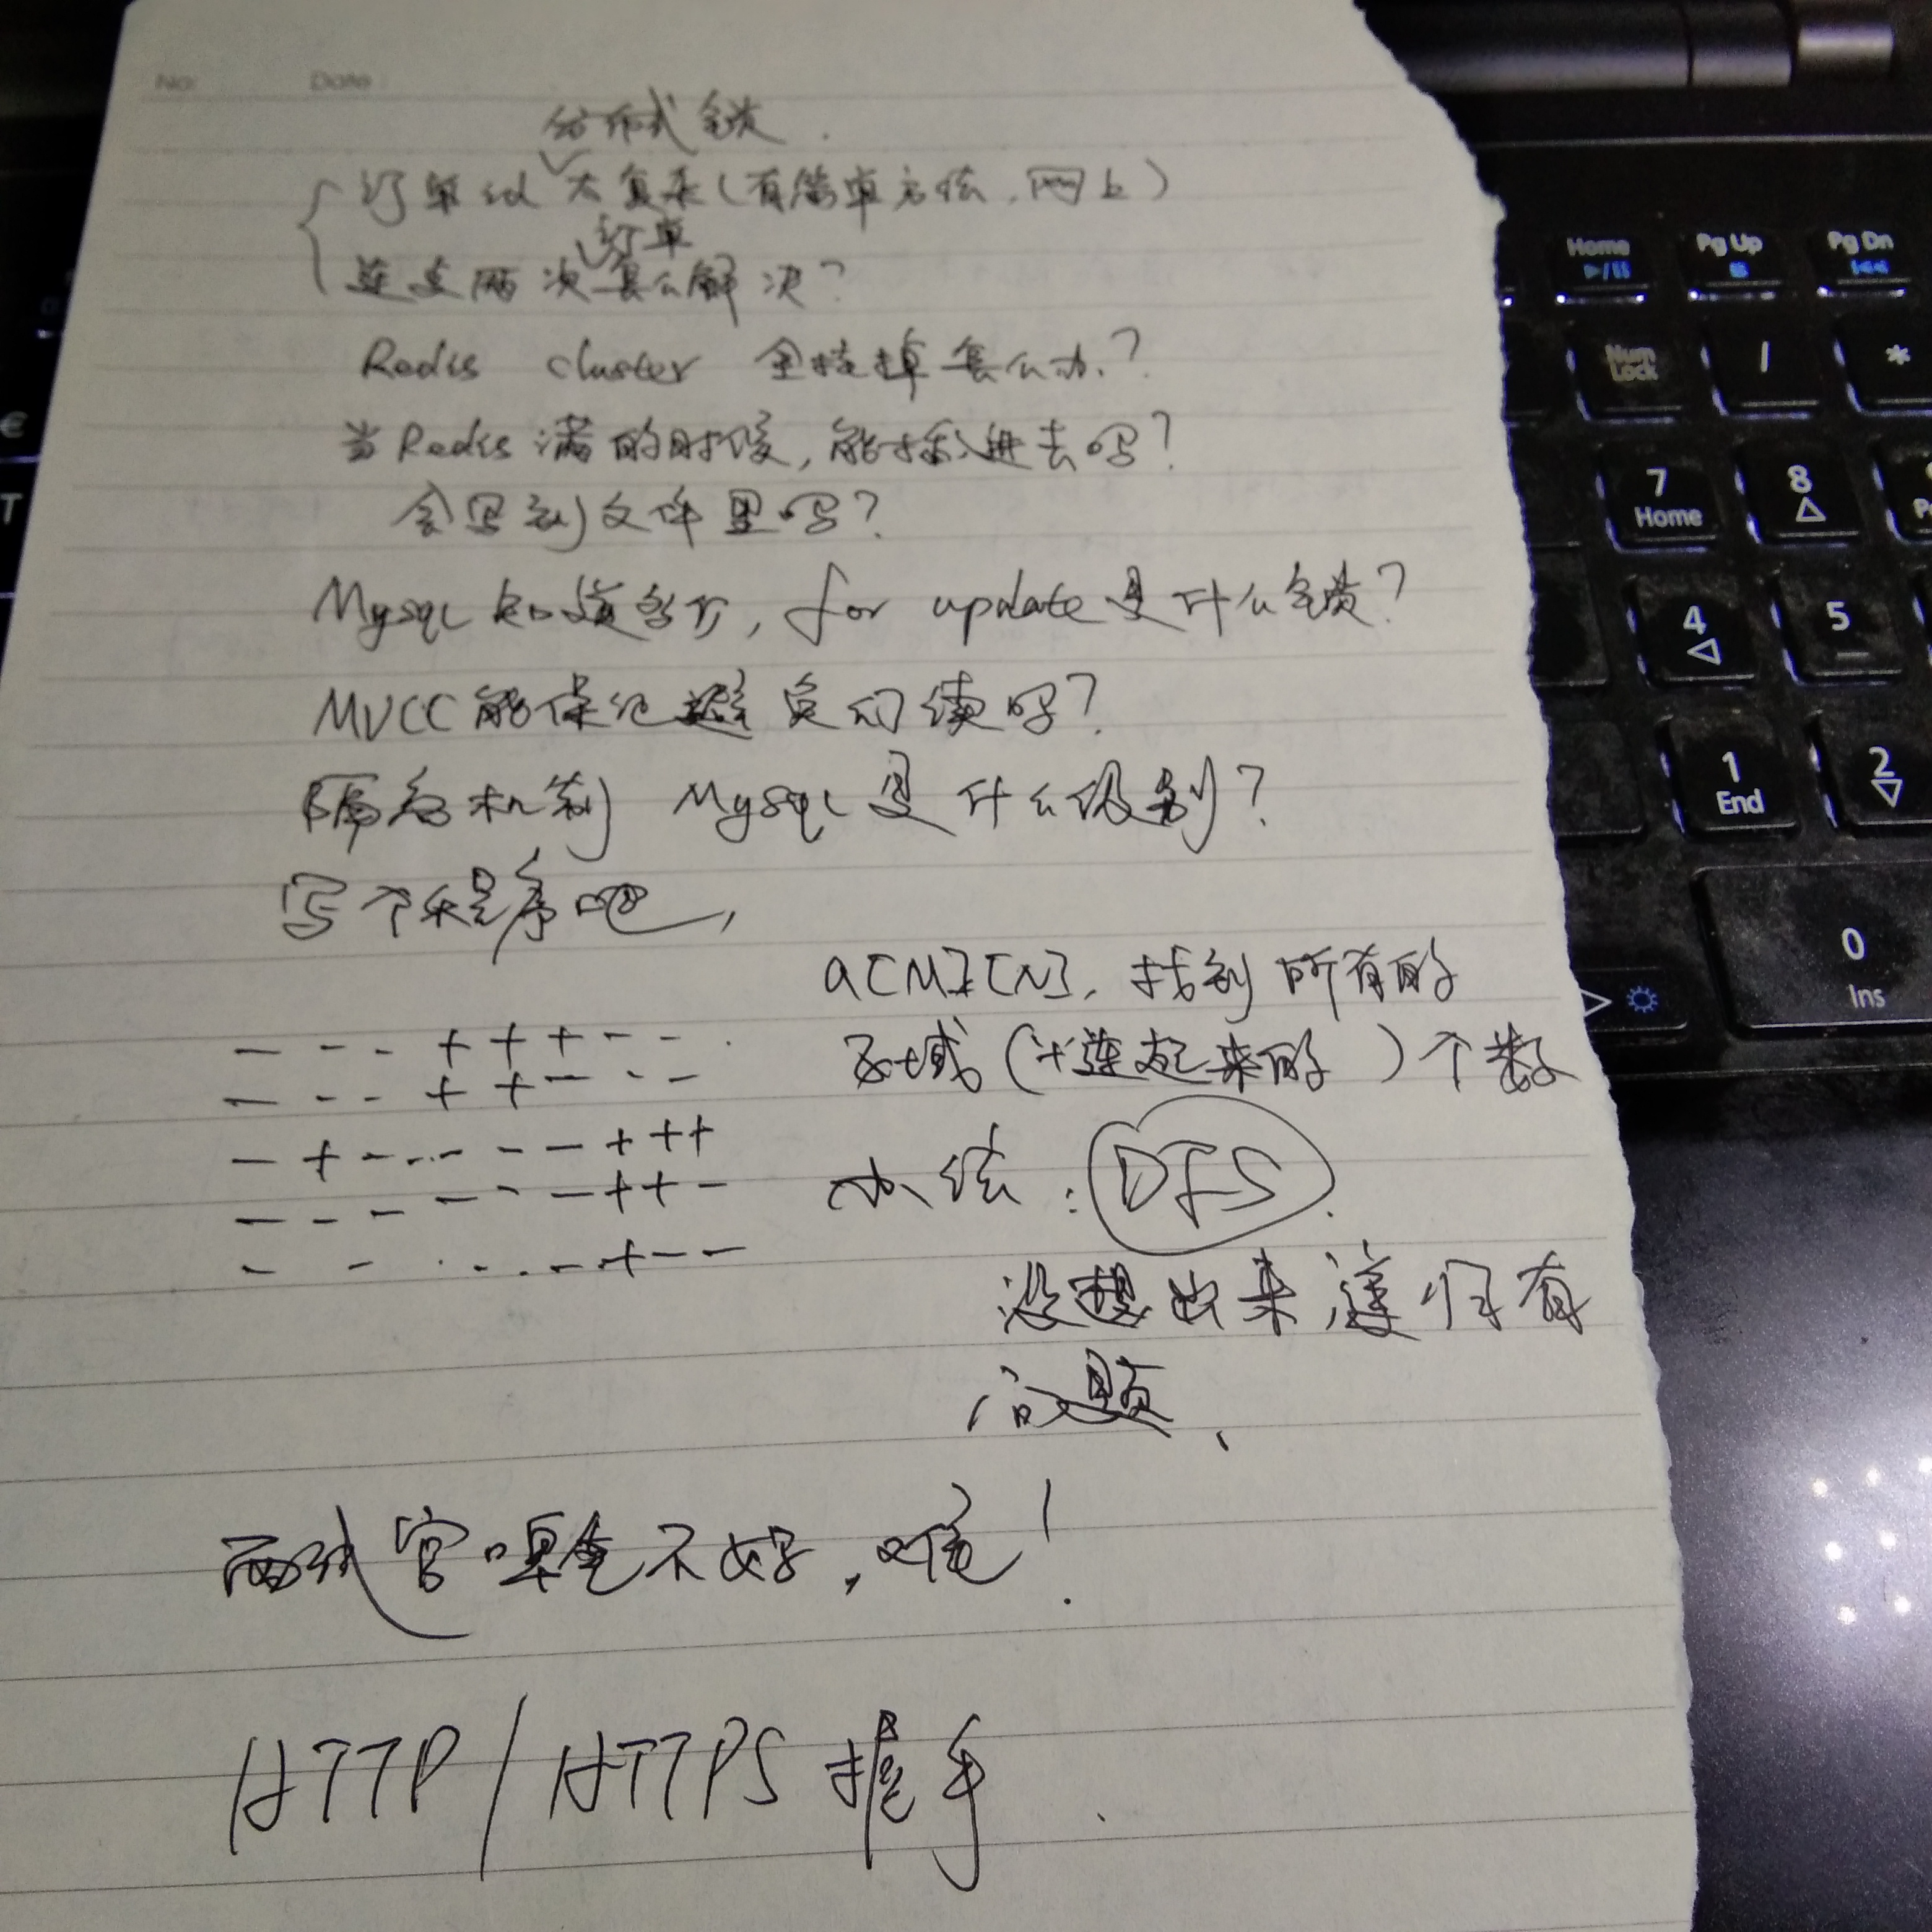 No: Date:
分布式锁.
订单以太复杂(有简单方法,网上)
订单
连点两次怎么解决?
Redis cluster 全挂掉怎么办?
当Redis满的时候,能插进去吗?
会写到文件里吗?
Mysql知道多少, for update是什么锁?
MVCC能保证避免幻读吗?
隔离机制 Mysql是什么级别?
写个程序吧,
a[M][N], 找到所有的
区域(+连起来的)个数
- - - + + + - -
- - - + + - - -
- + - - - - - + + +
- - - - - - + + -
- - - - - - + - -
办法:DFS.
没想出来递归有
问题、
面试官嗅觉不好,唉!
HTTP/HTTPS握手.
Home
Pg Up
Pg Dn
Num Lock
/
*
7 Home
8
4
5
1 End
2
0 Ins
€
T